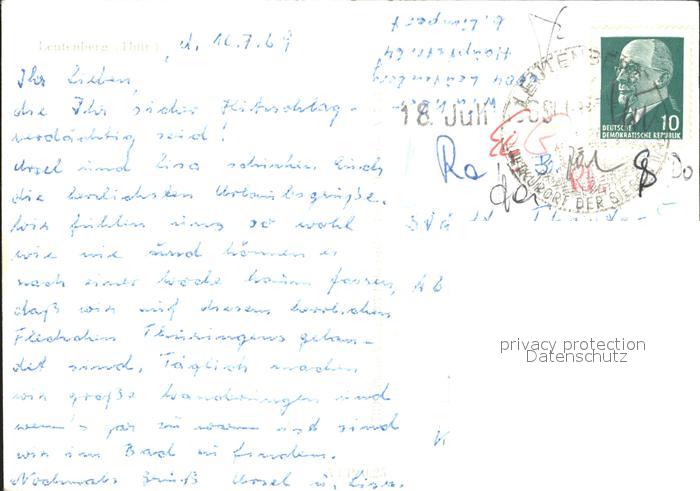 Leutenberg (Thür.) d. 16.7.69
Ihr Lieben,
die Ihr sicher Hitzschlag-
verdächtig seid!
Ursel und Lisa schicken Euch
die herzlichsten Urlaubsgrüße.
Wir fühlen uns so wohl
wie nie und können es
nach einer Woche kaum fassen,
daß wir auf diesem herrlichen
Fleckchen Thüringens gelan-
det sind. Täglich machen
wir große Wanderungen und
wenn's gar zu warm ist sind
wir im Bad zu finden.
Nochmals Gruß Ursel u. Lisa.
Hauptstr.
18. Juli
LEUTENBERG
KURORT DER SIEBEN
DEUTSCHE
DEMOKRATISCHE REPUBLIK
10
Ra
Do
privacy protection
Datenschutz